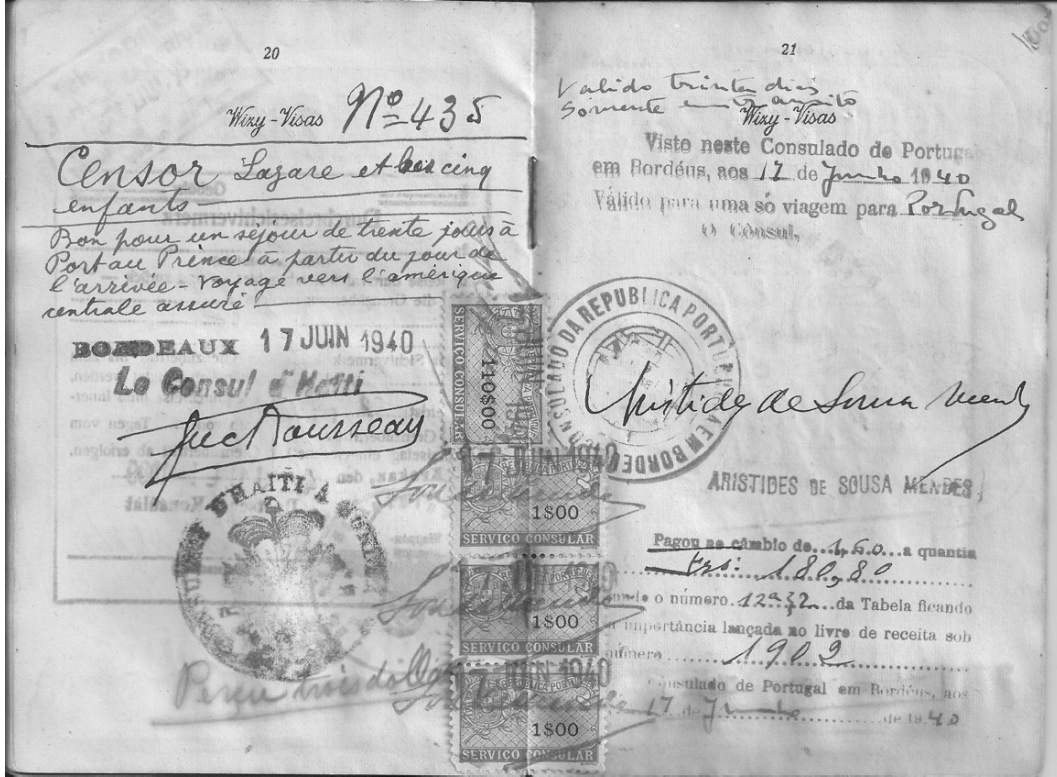 20
Wizy-Visas Nº 435
Censor Lazare et ses cinq
enfants —
Bon pour un séjour de trente jours à
Port au Prince à partir du jour de
l'arrivée - voyage vers l'amérique
centrale assuré -
BORDEAUX 17 JUIN 1940
Le Consul d'Haiti
D'HAITI À
Perçu trois dollars
SERVIÇO CONSULAR
110$00
17 JUIN 1940
1$00
SERVIÇO CONSULAR
JUIN 1940
1$00
SERVIÇO CONSULAR
JUIN 1940
1$00
SERVIÇO CONSULAR
21
Valido trinta dias
Somente em transito
Wizy-Visas
Visto neste Consulado de Portugal
em Bordéus, aos 17 de Junho 1940
Válido para uma só viagem para Portugal
O Consul,
CONSULADO DA REPUBLICA PORTUGUESA EM BORDEUS
Aristides de Sousa Mendes
ARISTIDES DE SOUSA MENDES
Pagou ao câmbio de...1,60...a quantia
Frs: 180,80
o número. 12ª 32...da Tabela ficando
a importância lançada no livro de receita sob
número 1902
Consulado de Portugal em Bordéus, aos
17 de Junho de 1940